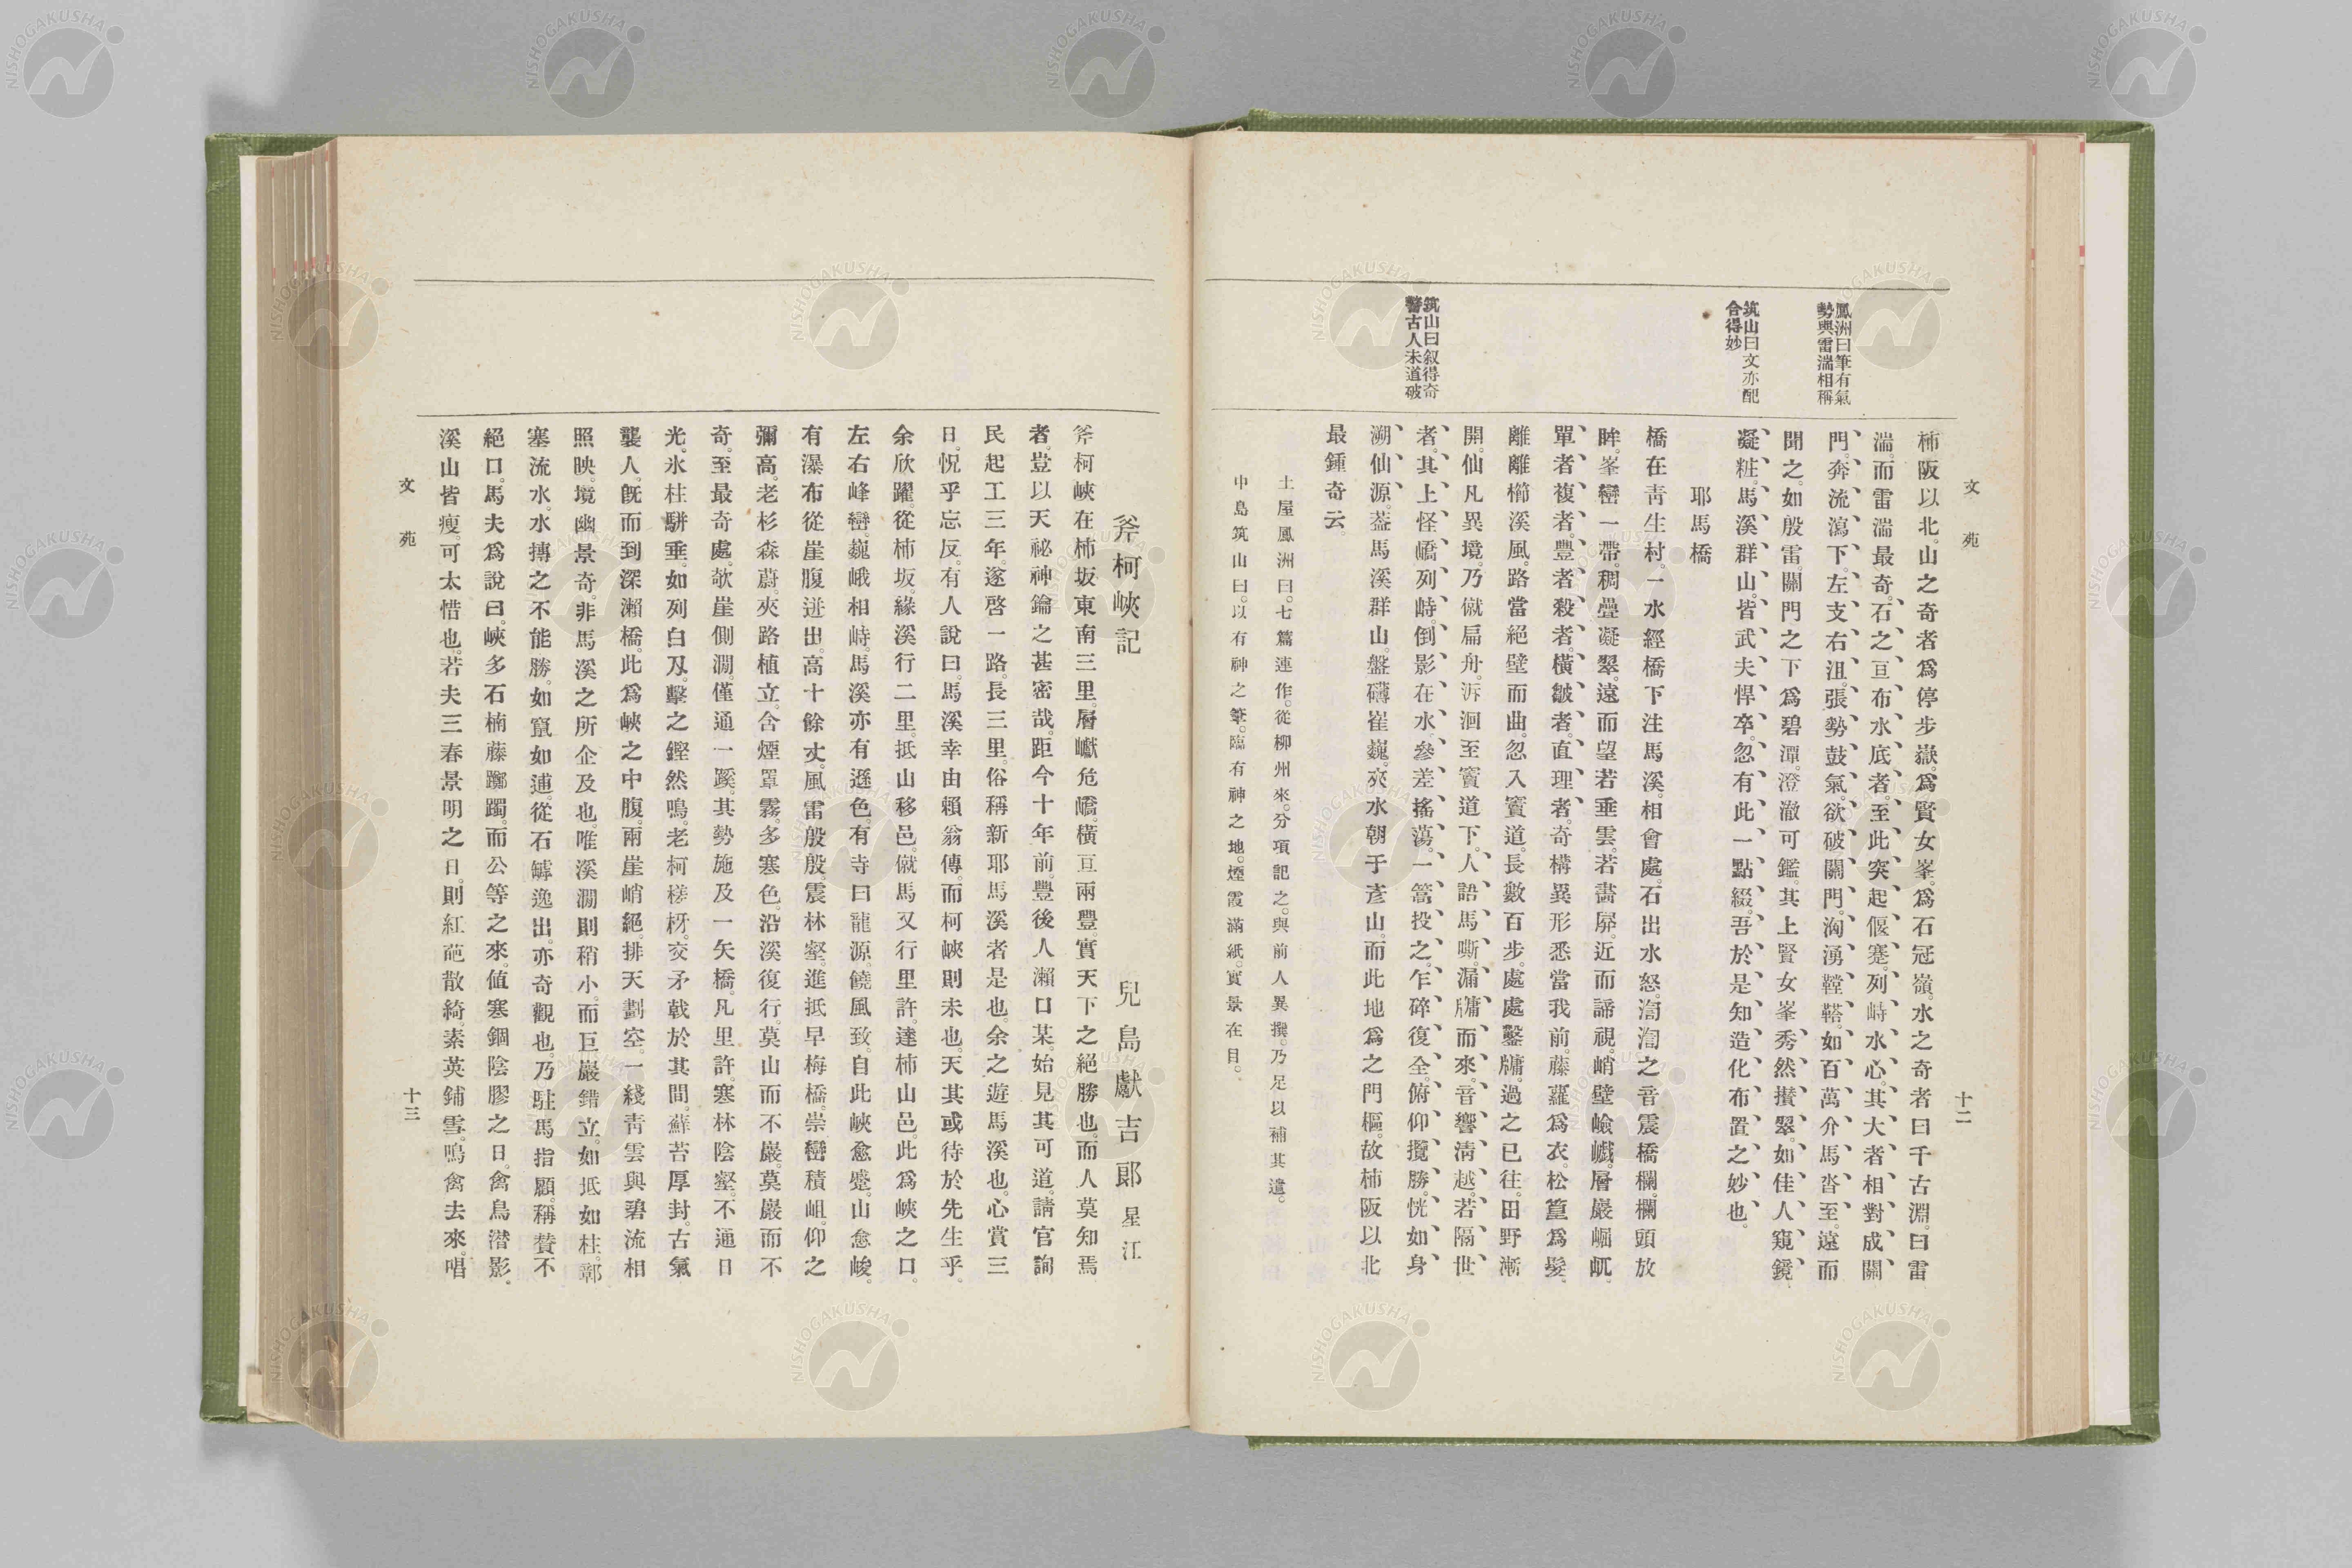 文苑
十二
鳳洲曰筆有氣
勢與雷湍相稱
筑山曰文亦配
合得妙
筑山曰叙得奇
警古人未道破
柿阪以北。山之奇者爲停步嶽。爲賢女峯。爲石冠嶺。水之奇者曰千古淵。曰雷
湍。而雷湍最奇。石之亘布水底者。至此突起偃蹇。列峙水心。其大者相對成關
門。奔流瀉下。左支右沮。張勢鼓氣。欲破關門。洶湧鞺鞳。如百萬介馬沓至。遠而
聞之。如殷雷。關門之下爲碧潭。澄澈可鑑。其上賢女峯秀然攅翠。如佳人窺鏡
凝粧。馬溪群山。皆武夫悍卒。忽有此一點綴。吾於是知造化布置之妙也。
耶馬橋
橋在靑生村。一水經橋下注馬溪。相會處。石出水怒。渹渹之音震橋欄。欄頭放
眸。峯巒一帶。稠疊凝翠。遠而望若垂雲。若畵屏。近而諦視。峭壁嶮巇。層巖崛屼。
單者複者。豐者殺者。橫皴者。直理者。奇構異形悉當我前。藤蘿爲衣。松篁爲髮。
離離櫛溪風。路當絕壁而曲。忽入竇道。長數百步。處處鑿牖。過之已往。田野漸
開。仙凡異境。乃僦扁舟。泝洄至竇道下。人語馬嘶。漏牖而來。音響淸越。若隔世
者。其上怪巒列峙。倒影在水。參差搖蕩。一篙投之。乍碎復全。俯仰攬勝。恍如身
溯仙源。葢馬溪群山。盤礴崔巍。夾水朝于彥山。而此地爲之門樞。故柿阪以北
最鍾奇云。
土屋鳳洲曰。七篇連作。從柳州來。分項記之。與前人異撰。乃足以補其遺。
中島筑山曰。以有神之筆。臨有神之地。煙霞滿紙。實景在目。
斧柯峽記 兒島獻吉郞 星江
斧柯峽在柿坂東南三里。層巘危嶠。橫亘兩豐。實天下之絕勝也。而人莫知焉
者。豈以天祕神鑰之甚密哉。距今十年前。豐後人瀨口某。始見其可道。請官詢
民起工三年。遂啓一路。長三里。俗稱新耶馬溪者是也。余之遊馬溪也。心賞三
日。怳乎忘反。有人說曰。馬溪幸由賴翁傳。而柯峽則未也。天其或待於先生乎。
余欣躍。從柿坂。緣溪行二里。抵山移邑。僦馬又行里許。達柿山邑。此爲峽之口。
左右峰巒。巍峨相峙。馬溪亦有遜色。有寺曰龍源。饒風致。自此峽愈蹙。山愈峻。
有瀑布從崖腹迸出。高十餘丈。風雷殷殷。震林壑。進抵早梅橋。崇巒積岨。仰之
彌高。老杉森蔚。夾路植立。含煙罩霧。多寒色。沿溪復行。莫山而不巖。莫巖而不
奇。至最奇處。欹崖側澗。僅通一蹊。其勢施及一矢橋。凡里許。寒林陰壑。不通日
光。氷柱駢垂。如列白刄。擊之鏗然鳴。老柯槎枒。交矛戟於其間。蘚苔厚封。古氣
襲人。旣而到深瀨橋。此爲峽之中腹。兩崖峭絕。排天劃空。一綫靑雲。與碧流相
照映。境幽景奇。非馬溪之所企及也。唯溪澗則稍小。而巨巖錯立。如抵如柱。鄣
塞流水。水摶之不能勝。如竄如逋。從石罅逸出。亦奇觀也。乃駐馬指顧。稱賛不
絕口。馬夫爲說曰。峽多石楠藤躑躅。而公等之來。値寒錮陰膠之日。禽鳥潛影。
溪山皆瘦。可太惜也。若夫三春景明之日。則紅葩散綺。素英鋪雪。鳴禽去來。唱
文苑
十三